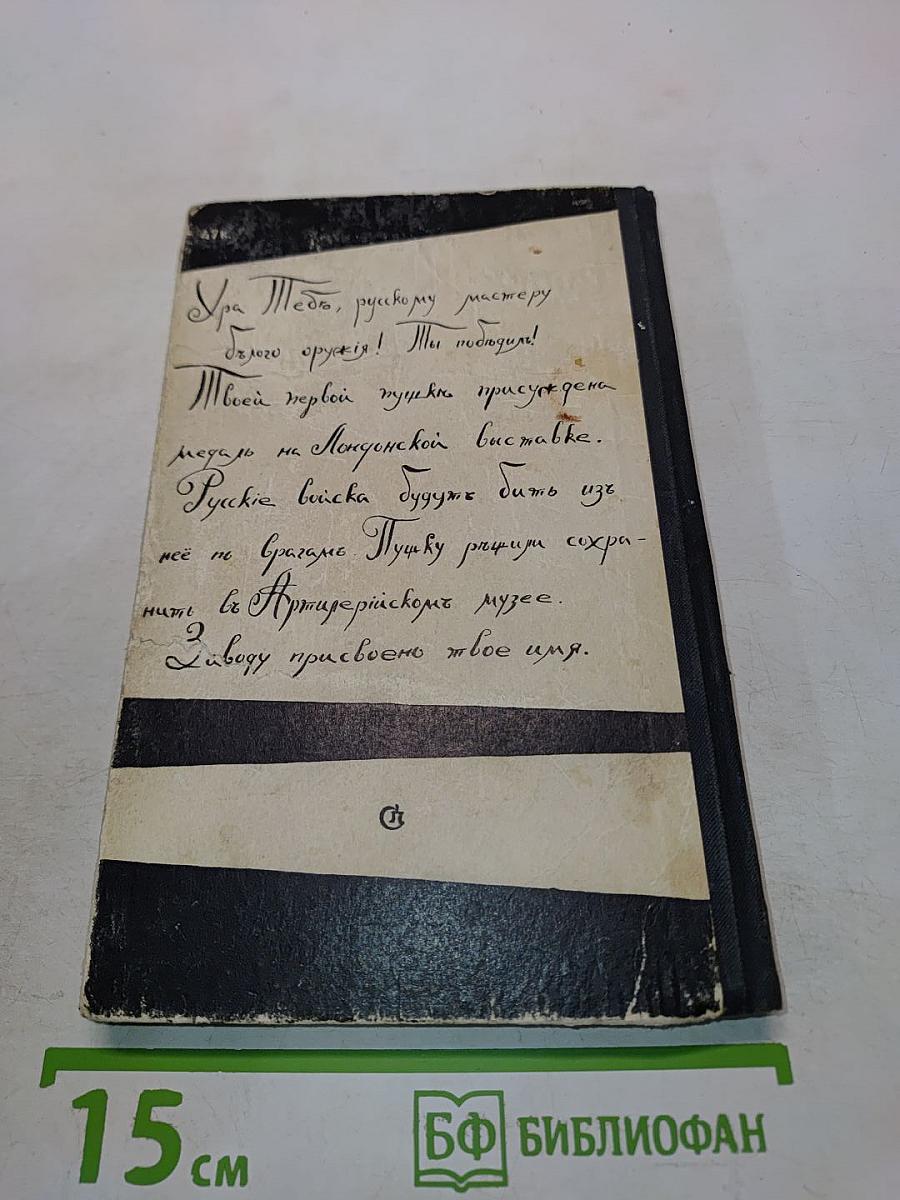 Ура Тебѣ, русскому мастеру
бѣлого оружія! Ты побѣдилъ!
Твоей первой пушкѣ присуждена
медаль на Лондонской выставке.
Русскіе войска будутъ бить изъ
неё по врагамъ. Пушку рѣшили сохра-
нить въ Артилерійскомъ музее.
Заводу присвоено твое имя.
СП
15 см
БФ БИБЛИОФАН